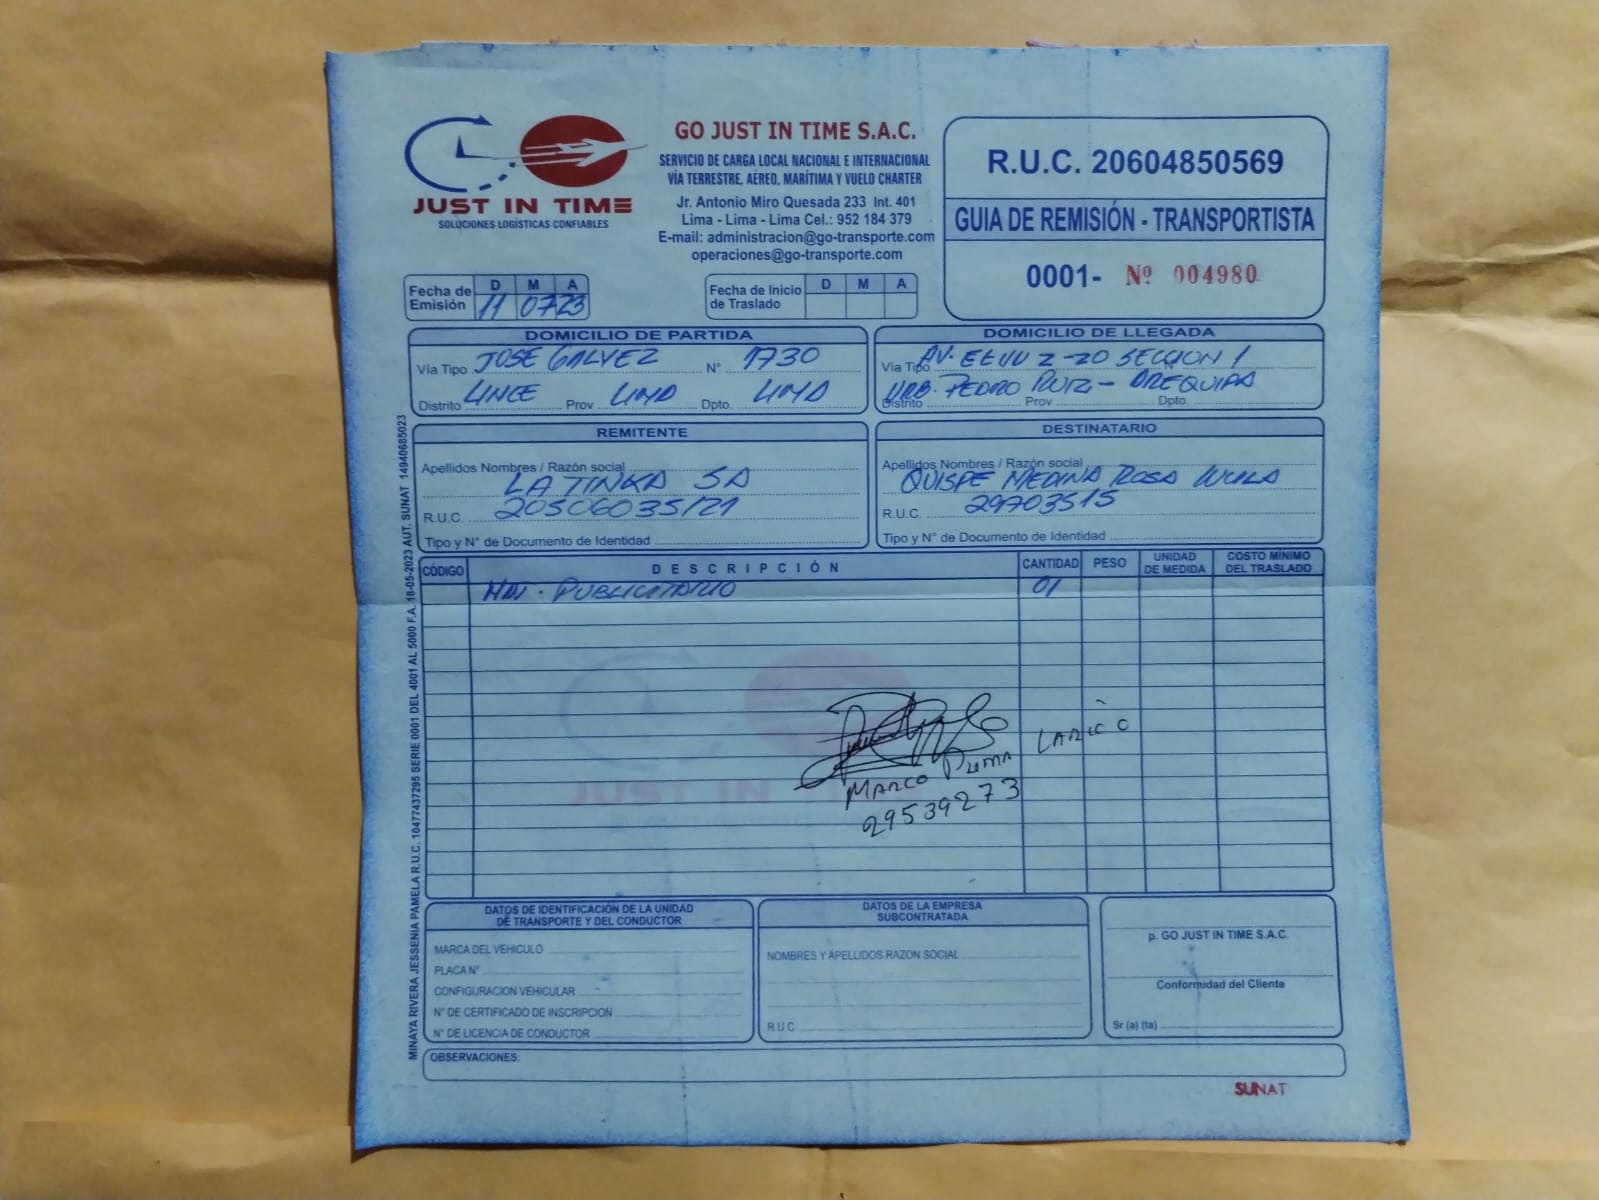 JUST IN TIME
SOLUCIONES LOGÍSTICAS CONFIABLES
GO JUST IN TIME S.A.C.
SERVICIO DE CARGA LOCAL NACIONAL E INTERNACIONAL
VÍA TERRESTRE, AÉREO, MARÍTIMA Y VUELO CHARTER
Jr. Antonio Miro Quesada 233 Int. 401
Lima - Lima - Lima Cel.: 952 184 379
E-mail: administracion@go-transporte.com
operaciones@go-transporte.com
R.U.C. 20604850569
GUIA DE REMISIÓN - TRANSPORTISTA
0001- Nº 004980
Fecha de Emisión D M A
11 07 23
Fecha de Inicio de Traslado D M A
DOMICILIO DE PARTIDA
Vía Tipo JOSE GALVEZ N° 1730
Distrito LINCE Prov LIMA Dpto. LIMA
DOMICILIO DE LLEGADA
Vía Tipo AV. EEUU Z-20 SECCION 1
URB. PEDRO RUIZ - AREQUIPA
Distrito Prov Dpto.
REMITENTE
Apellidos Nombres / Razón social
LA TINKA SA
R.U.C. 20506035121
Tipo y N° de Documento de Identidad
DESTINATARIO
Apellidos Nombres / Razón social
QUISPE MEDINA ROSA
R.U.C. 29703515
Tipo y N° de Documento de Identidad
CÓDIGO DESCRIPCIÓN CANTIDAD PESO UNIDAD DE MEDIDA COSTO MÍNIMO DEL TRASLADO
PUBLICITARIO 01
JUST IN TIME
MARCO PUMA LARICO
29539273
DATOS DE IDENTIFICACIÓN DE LA UNIDAD
DE TRANSPORTE Y DEL CONDUCTOR
MARCA DEL VEHICULO
PLACA N°
CONFIGURACION VEHICULAR
N° DE CERTIFICADO DE INSCRIPCION
N° DE LICENCIA DE CONDUCTOR
DATOS DE LA EMPRESA
SUBCONTRATADA
NOMBRES Y APELLIDOS RAZON SOCIAL
R.U.C
p. GO JUST IN TIME S.A.C.
Conformidad del Cliente
Sr (a) (ta)
OBSERVACIONES:
SUNAT
MINAYA RIVERA JESSENIA PAMELA R.U.C. 10477437295 SERIE 0001 DEL 4001 AL 5000 F.A. 18-05-2023 AUT. SUNAT 14940685023